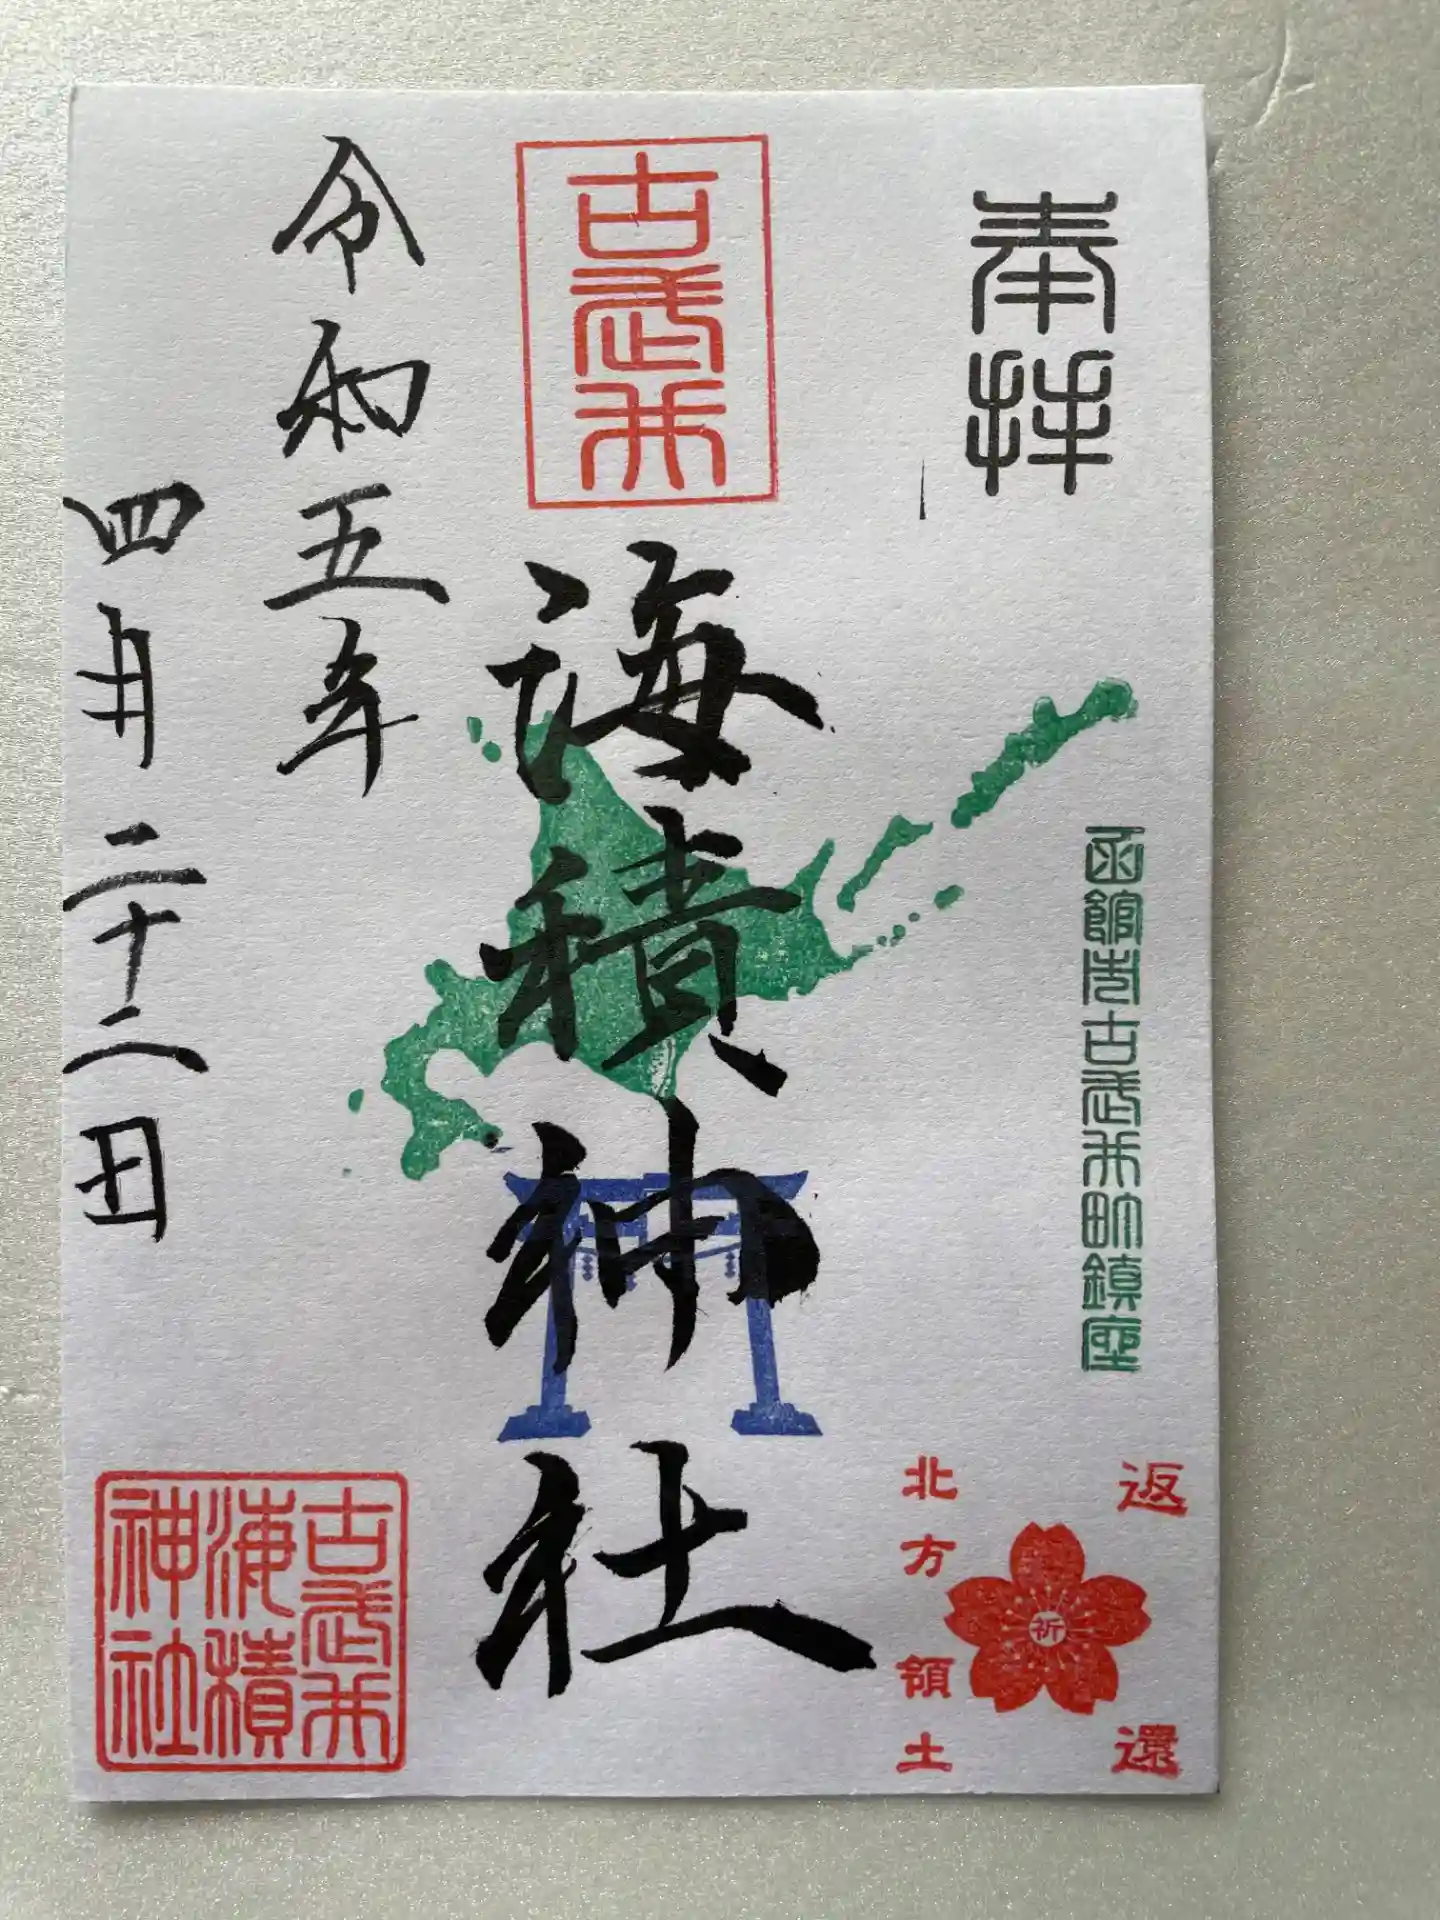 奉拝
函館市古武井町鎮座
返還
祈
北方領土
古武井
海積神社
令和五年
四月二十二日
古武井
海積
神社